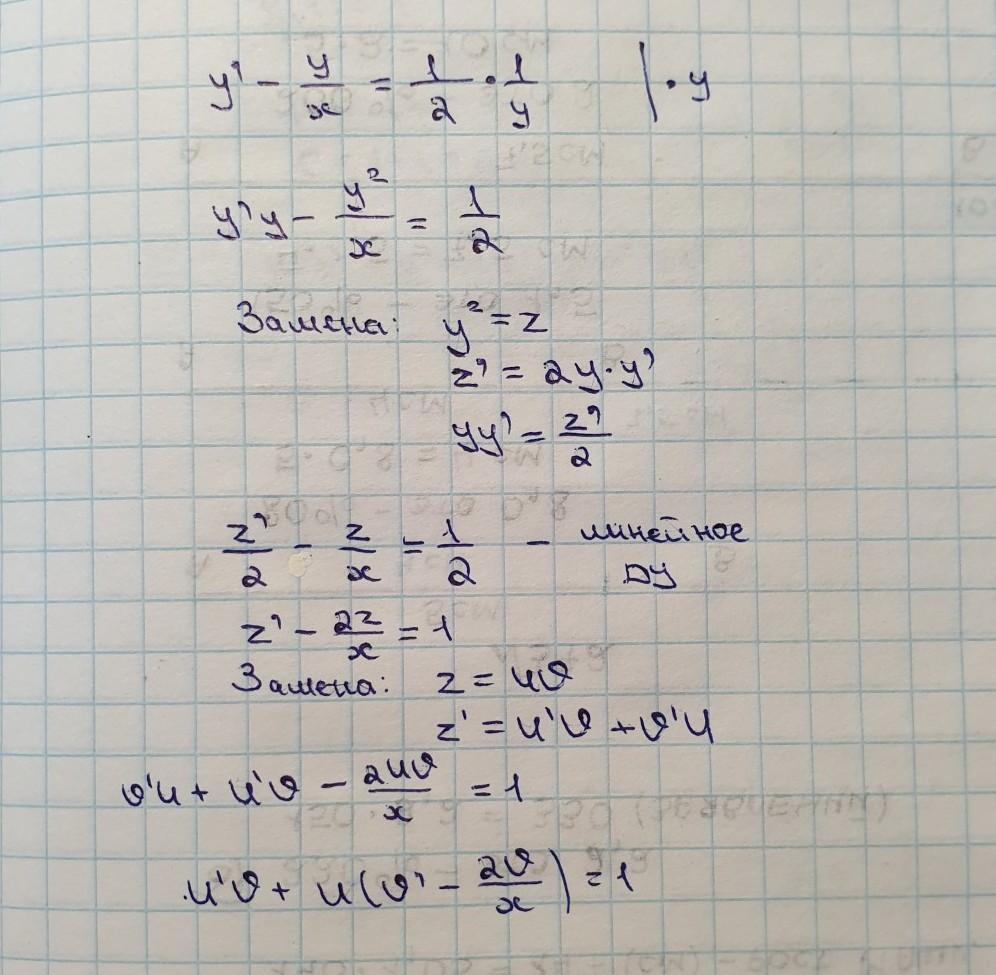 y' - y/x = 1/2 · 1/y | · y
y'y - y²/x = 1/2
Замена: y² = z
z' = 2y · y'
yy' = z'/2
z'/2 - z/x = 1/2 - линейное
ДУ
z' - 2z/x = 1
Замена: z = uϑ
z' = u'ϑ + ϑ'u
ϑ'u + u'ϑ - 2uϑ/x = 1
u'ϑ + u(ϑ' - 2ϑ/x) = 1